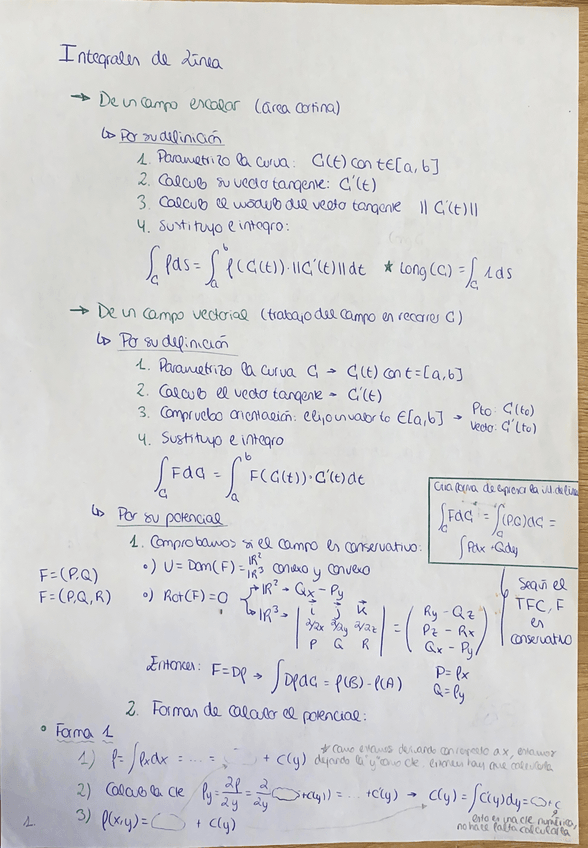 Integrales de Línea
→ De un campo escalar (área cortina)
↳ Por su definición
1. Parametrizo la curva: C(t) con t∈[a,b]
2. Calculo su vector tangente: C'(t)
3. Calculo el módulo del vector tangente ||C'(t)||
4. Sustituyo e integro:
∫_C f ds = ∫_a^b f(C(t))·||C'(t)|| dt * Long(C) = ∫_C 1 ds
→ De un campo vectorial (trabajo del campo en recorrer C)
↳ Por su definición
1. Parametrizo la curva C → C(t) con t=[a,b]
2. Calculo el vector tangente → C'(t)
3. Compruebo orientación: elijo un valor to ∈[a,b] → Pto: C(to)
Vector: C'(to)
4. Sustituyo e integro
∫_C F dC = ∫_a^b F(C(t))·C'(t) dt
Otra forma de expresar la int. de línea
∫_C F dC = ∫_C (P,Q) dC =
∫ Pdx + Qdy
↳ Por su potencial
1. Comprobamos si el campo es conservativo:
o) U = Dom(F) = ℝ² ℝ³ conexo y convexo
F=(P,Q)
F=(P,Q,R)
o) Rot(F)=0 → ℝ² → Qx - Py
→ ℝ³ → | i j k |
| ∂/∂x ∂/∂y ∂/∂z |
| P Q R | = ( Ry - Qz
Pz - Rx
Qx - Py )
Según el
TFC, F
es
conservativo
Entonces: F=Df → ∫ Df dC = f(B) - f(A) P=fx
Q=fy
2. Formas de calcular el potencial:
• Forma 1
1) f = ∫ fx dx = ... = + C(y) * como estamos derivando con respecto a x, estamos
dejando la "y" como cte. entonces hay que calcularla
2) Calculo la cte fy = ∂f/∂y = ∂/∂y ( + C(y)) = ... + C'(y) → C(y) = ∫ C'(y) dy = + C
esto es una cte numérica,
no hace falta calcularla
3) f(x,y) = + C(y)
1.